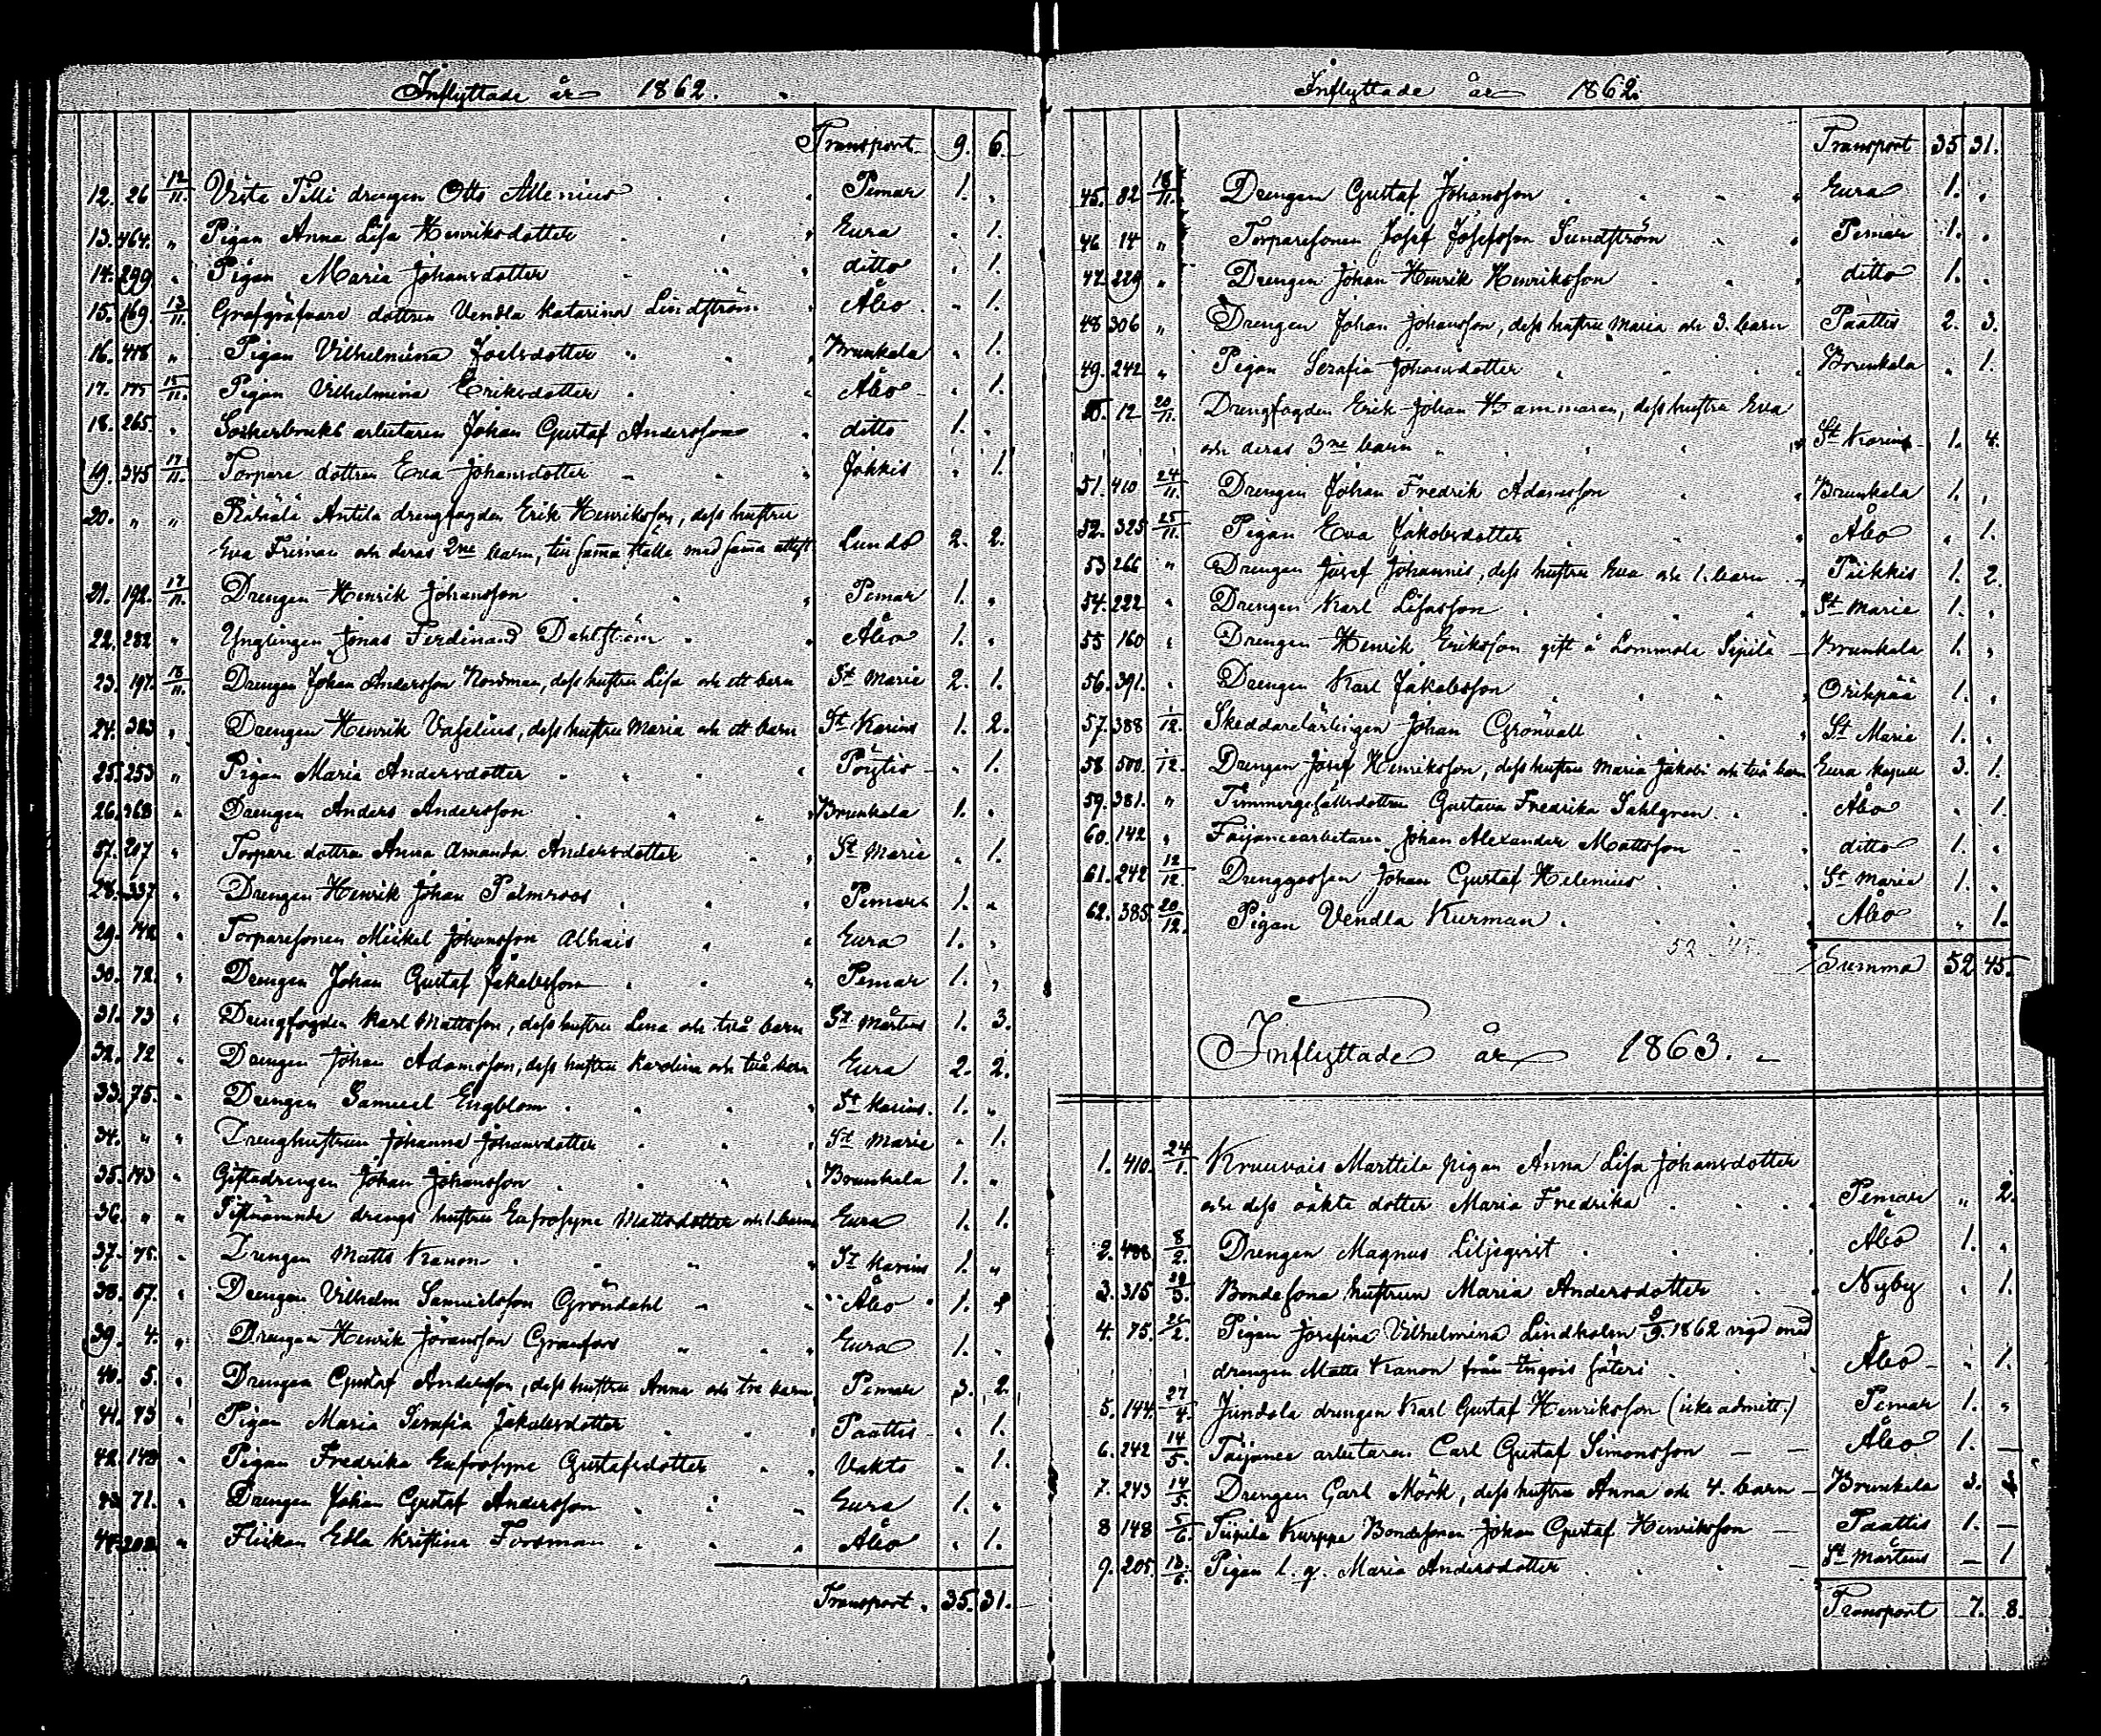 Inflyttade år 1862.
Transport 9. 6.
12. 26 12/11. Vista Tilli drengen Otto Allenius Pemar 1. „
13. 464. „ Pigan Anna Lisa Henriksdotter Eura „ 1.
14. 299. „ Pigan Maria Johansdotter ditto „ 1.
15. 169. 13/11. Grafgräfvare dottren Vendla Katarina Lindström Åbo „ 1.
16. 418 „ Pigan Vilhelmina Joelsdotter Brunkala „ 1.
17. 15/11. Pigan Vilhelmina Eriksdotter Åbo „ 1.
18. 265. „ Sockerbruks arbetaren Johan Gustaf Andersson ditto 1. „
19. 345 17/11. Torpare dottren Eva Johansdotter Jokkis „ 1.
20. „ „ Antila drengfogden Erik Henriksson, dess hustru
Eva Friman och deras 2ne barn, till samma ställe med samma attest Lundo 2. 2.
21. 192. 17/11. Drengen Henrik Johansson Pemar 1. „
22. 282 „ Ynglingen Jonas Ferdinand Dahlström Åbo 1. „
23. 197. 18/11. Drengen Johan Andersson Nordman, dess hustru Lisa och ett barn St Marie 2. 1.
24. 383 „ Drengen Henrik Vaselius, dess hustru Maria och ett barn St Karins 1. 2.
25. 253 „ Pigan Maria Andersdotter Pöytis „ 1.
26. 368 „ Drengen Anders Andersson Brunkala 1. „
27. 207 „ Torpare dottren Anna Amanda Andersdotter St Marie „ 1.
28. 337 „ Drengen Henrik Johan Palmroos Pemar 1. „
29. 142 „ Torparesonen Mickel Johansson Alhais Eura 1. „
30. 72. „ Drengen Johan Gustaf Jakobsson Pemar 1. „
31. 73 „ Drengfogden Karl Mattsson, dess hustru Lena och två barn St Mårtens 1. 3.
32. 72 „ Drengen Johan Adamsson, dess hustru Karolina och två barn Eura 2. 2.
33. 75. „ Drengen Samuel Engblom St Karins. 1. „
34. „ „ Drenghustrun Johanna Johansdotter St Marie „ 1.
35. 143 „ Giftadrengen Johan Johansson Brunkala 1. „
36. „ „ Sistnämnde drengs hustru Eufrosyne Mattsdotter och 1. barn Eura 1. 1.
37. 75. „ Drengen Matts Kanon St Karins 1. „
38. 57. „ Drengen Vilhelm Samuelsson Gröndahl Åbo 1. „
39. 4. „ Drengen Henrik Göransson Granfors Eura 1. „
40. 5. „ Drengen Gustaf Andersson, dess hustru Anna och tre barn Pemar 3. 2.
41. 73 „ Pigan Maria Serafia Jakobsdotter Paattis „ 1.
42. 148 „ Pigan Fredrika Eufrosyne Gustafsdotter Vahto „ 1.
43. 71. „ Drengen Johan Gustaf Andersson Eura 1. „
44. 202. „ Flickan Edla Kristina Forsman Åbo „ 1.
Transport. 35. 31.
Inflyttade år 1862.
Transport 35 31.
45. 82 18/11. Drengen Gustaf Johansson Eura 1. „
46 14 „ Torparesonen Josef Josefsson Sundström Pemar 1. „
47. 229 „ Drengen Johan Henrik Henriksson ditto 1. „
48 306 „ Drengen Johan Johansson, dess hustru Maria och 3. barn Paattis 2. 3.
49. 242 „ Pigan Serafia Johansdotter Brunkala „ 1.
50. 12 20/11. Drengfogden Erik Johan Hammaren, dess hustru Eva
och deras 3ne barn St Karins 1. 4.
51. 410 24/11. Drengen Johan Fredrik Adamsson Brunkala 1. „
52. 325 25/11. Pigan Eva Jakobsdotter Åbo „ 1.
53 266 „ Drengen Josef Johannis, dess hustru Eva och 1. barn Piikkis 1. 2.
54. 222 „ Drengen Karl Lisasson St Marie 1. „
55 160 „ Drengen Henrik Eriksson gift å Lommola Sipilä Brunkala 1. „
56. 391. „ Drengen Karl Jakobsson Orihpää 1. „
57. 388 1/12. Skeddarelärlingen Johan Grönvall St Marie 1. „
58. 500. /12. Drengen Josef Henriksson, dess hustru Maria Jakobi och två barn Eura kapell 3. 1.
59. 381. „ Timmergesällsdottren Gustava Fredrika Sahlgren Åbo „ 1.
60. 142 „ Faijancearbetaren Johan Alexander Mattsson ditto 1. „
61. 242 12/12. Drenggossen Johan Gustaf Helenius St Marie 1. „
62. 385. 20/12. Pigan Vendla Kurman Åbo „ 1.
52 45.
Summa 52 45.
Inflyttade år 1863.
1. 410. 24/1. Kruuvais Marttila pigan Anna Lisa Johansdotter
och dess oäkta dotter Maria Fredrika Pemar „ 2.
2. 488 8/2. Drengen Magnus Liljeqvist Åbo 1. „
3. 315 /3. Bondesons hustrun Maria Andersdotter Nyby „ 1.
4. 75. /2. Pigan Josefina Vilhelmina Lindholm 9/9. 1862 vigd med
drengen Matts Kanon från Ingois säteri Åbo „ 1.
5. 144. 27/4. Jundola drengen Karl Gustaf Henriksson (icke admitt.) Pemar 1. „
6. 242 14/5. Faijance arbetaren Carl Gustaf Simonsson Åbo 1. —
7. 243 14/5. Drengen Carl Mörk, dess hustru Anna och 4. barn Brunkala 3. 3
8 148 5/6. Tiipilä Kurppa Bondesonen Johan Gustaf Henriksson Paattis 1. —
9. 205. 13/6. Pigan l. q. Maria Andersdotter St Mårtens — 1
Transport 7. 8.